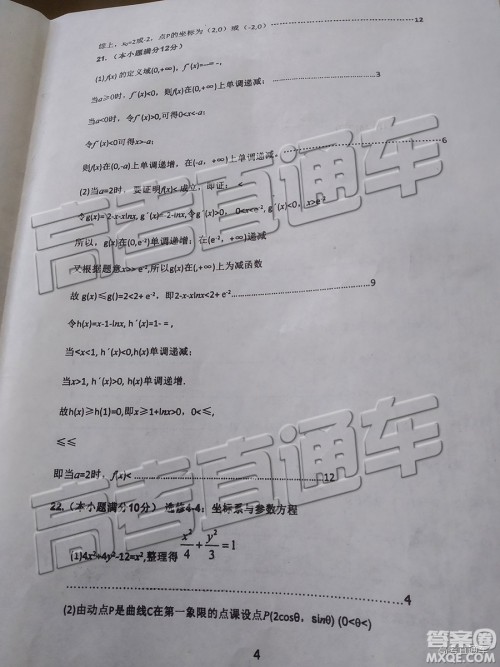 综上，x₀=2或-2，点P的坐标为（2,0）或（-2,0）............12
21.（本小题满分12分）
(1)f(x)的定义域(0,+∞)，f'(x)=--=-,
当a≥0时，f'(x)<0，则f(x)在(0,+∞)上单调递减；............3
当a<0时，令f'(x)>0,可得0<x<-a;
令f'(x)<0可得x>-a;
则f(x)在(0,-a)上单调递增，在(-a，+∞)上单调递减............6
(2)当a=2时，要证明f(x)<成立，即证：<
令g(x)=2-x-xlnx,g'(x)=-2-lnx,令g'(x)>0，0<x<e⁻²,g'(x)<0，x>e⁻²
所以，g(x)在(0,e⁻²)单调递增；在(e⁻²，+∞)递减
又根据题意x>>e⁻²,所以g(x)在(,+∞)上为减函数
故 g(x)≤g()=2<2+ e⁻²，即2-x-xlnx<2+ e⁻²............9
令h(x)=x-1-lnx，h'(x)=1- = ,
当<x<1，h'(x)<0,h(x)单调递减；
当x>1，h'(x)>0，h(x)单调递增.
故h(x)≥h(1)=0,即x≥1+lnx>0，0<≤,
≤≤
即当a=2时，f(x)<............12
22.（本小题满分10分） 选修4-4：坐标系与参数方程
(1)4x²+4y²-12=x²,整理得 x²/4+y²/3=1
............4
(2)由动点P是曲线C在第一象限的点课设点P(2cosθ，sinθ) (0<θ<)
4
高考直通车
高考直通车
答案圈
MXQE.COM